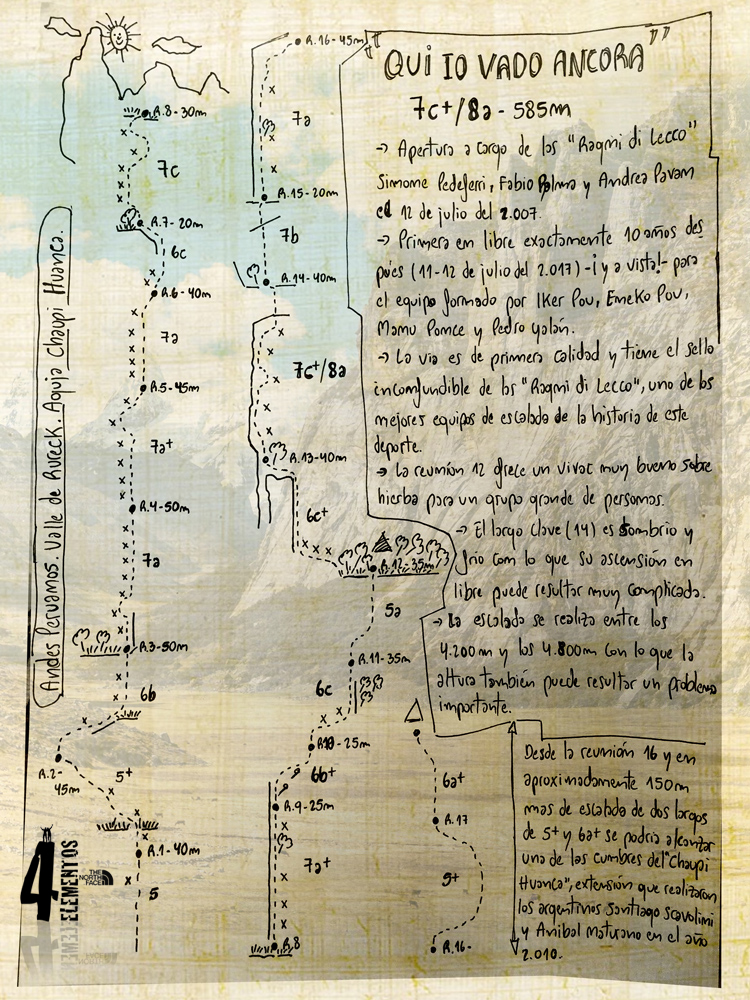 "QUI IO VADO ANCORA"
7c+/8a - 585m
→ Apertura a cargo de los "Ragni di Lecco"
Simone Pedeferri, Fabio Palma y Andrea Pavan
el 12 de julio del 2.007.
→ Primera en libre exactamente 10 años des
pués (11-12 de julio del 2.017) -¡y a vista!- para
el equipo formado por Iker Pou, Eneko Pou,
Manu Ponce y Pedro Galán.
→ La via es de primera calidad y tiene el sello
inconfundible de los "Ragni di Lecco", uno de los
mejores equipos de escalada de la historia de este
deporte.
→ La reunión 12 ofrece un vivac muy bueno sobre
hierba para un grupo grande de personas.
→ El largo clave (14) es sombrio y
frio con lo que su ascensión en
libre puede resultar muy complicada.
→ La escalada se realiza entre los
4.200m y los 4.800m con lo que la
altura también puede resultar un problema
importante.
Desde la reunión 16 y en
aproximadamente 150m
mas de escalada de dos largos
de 5+ y 6a+ se podria alcanzar
una de las cumbres del "Chaupi
Huanca", extensión que realizaron
los argentinos Santiago Scavolini
y Anibal Maturano en el año
2.010.
Andes Peruanos. Valle de Rureck. Aguja Chaupi Huanca.
R.8-30m
7c
R.7-20m
6c
R.6-40m
7a
R.5-45m
7a+
R.4-50m
7a
R.3-50m
6b
R.2-
45m
5+
R.1-40m
5
R.16-45m
7a
R.15-20m
7b
R.14-40m
7c+/8a
R.13-40m
6c+
R.12-35m
5a
R.11-35m
6c
R10-25m
6b+
R.9-25m
7a+
R.8
6a+
R.17
5+
R.16-
4ELEMENTOS
THE
NORTH
FACE